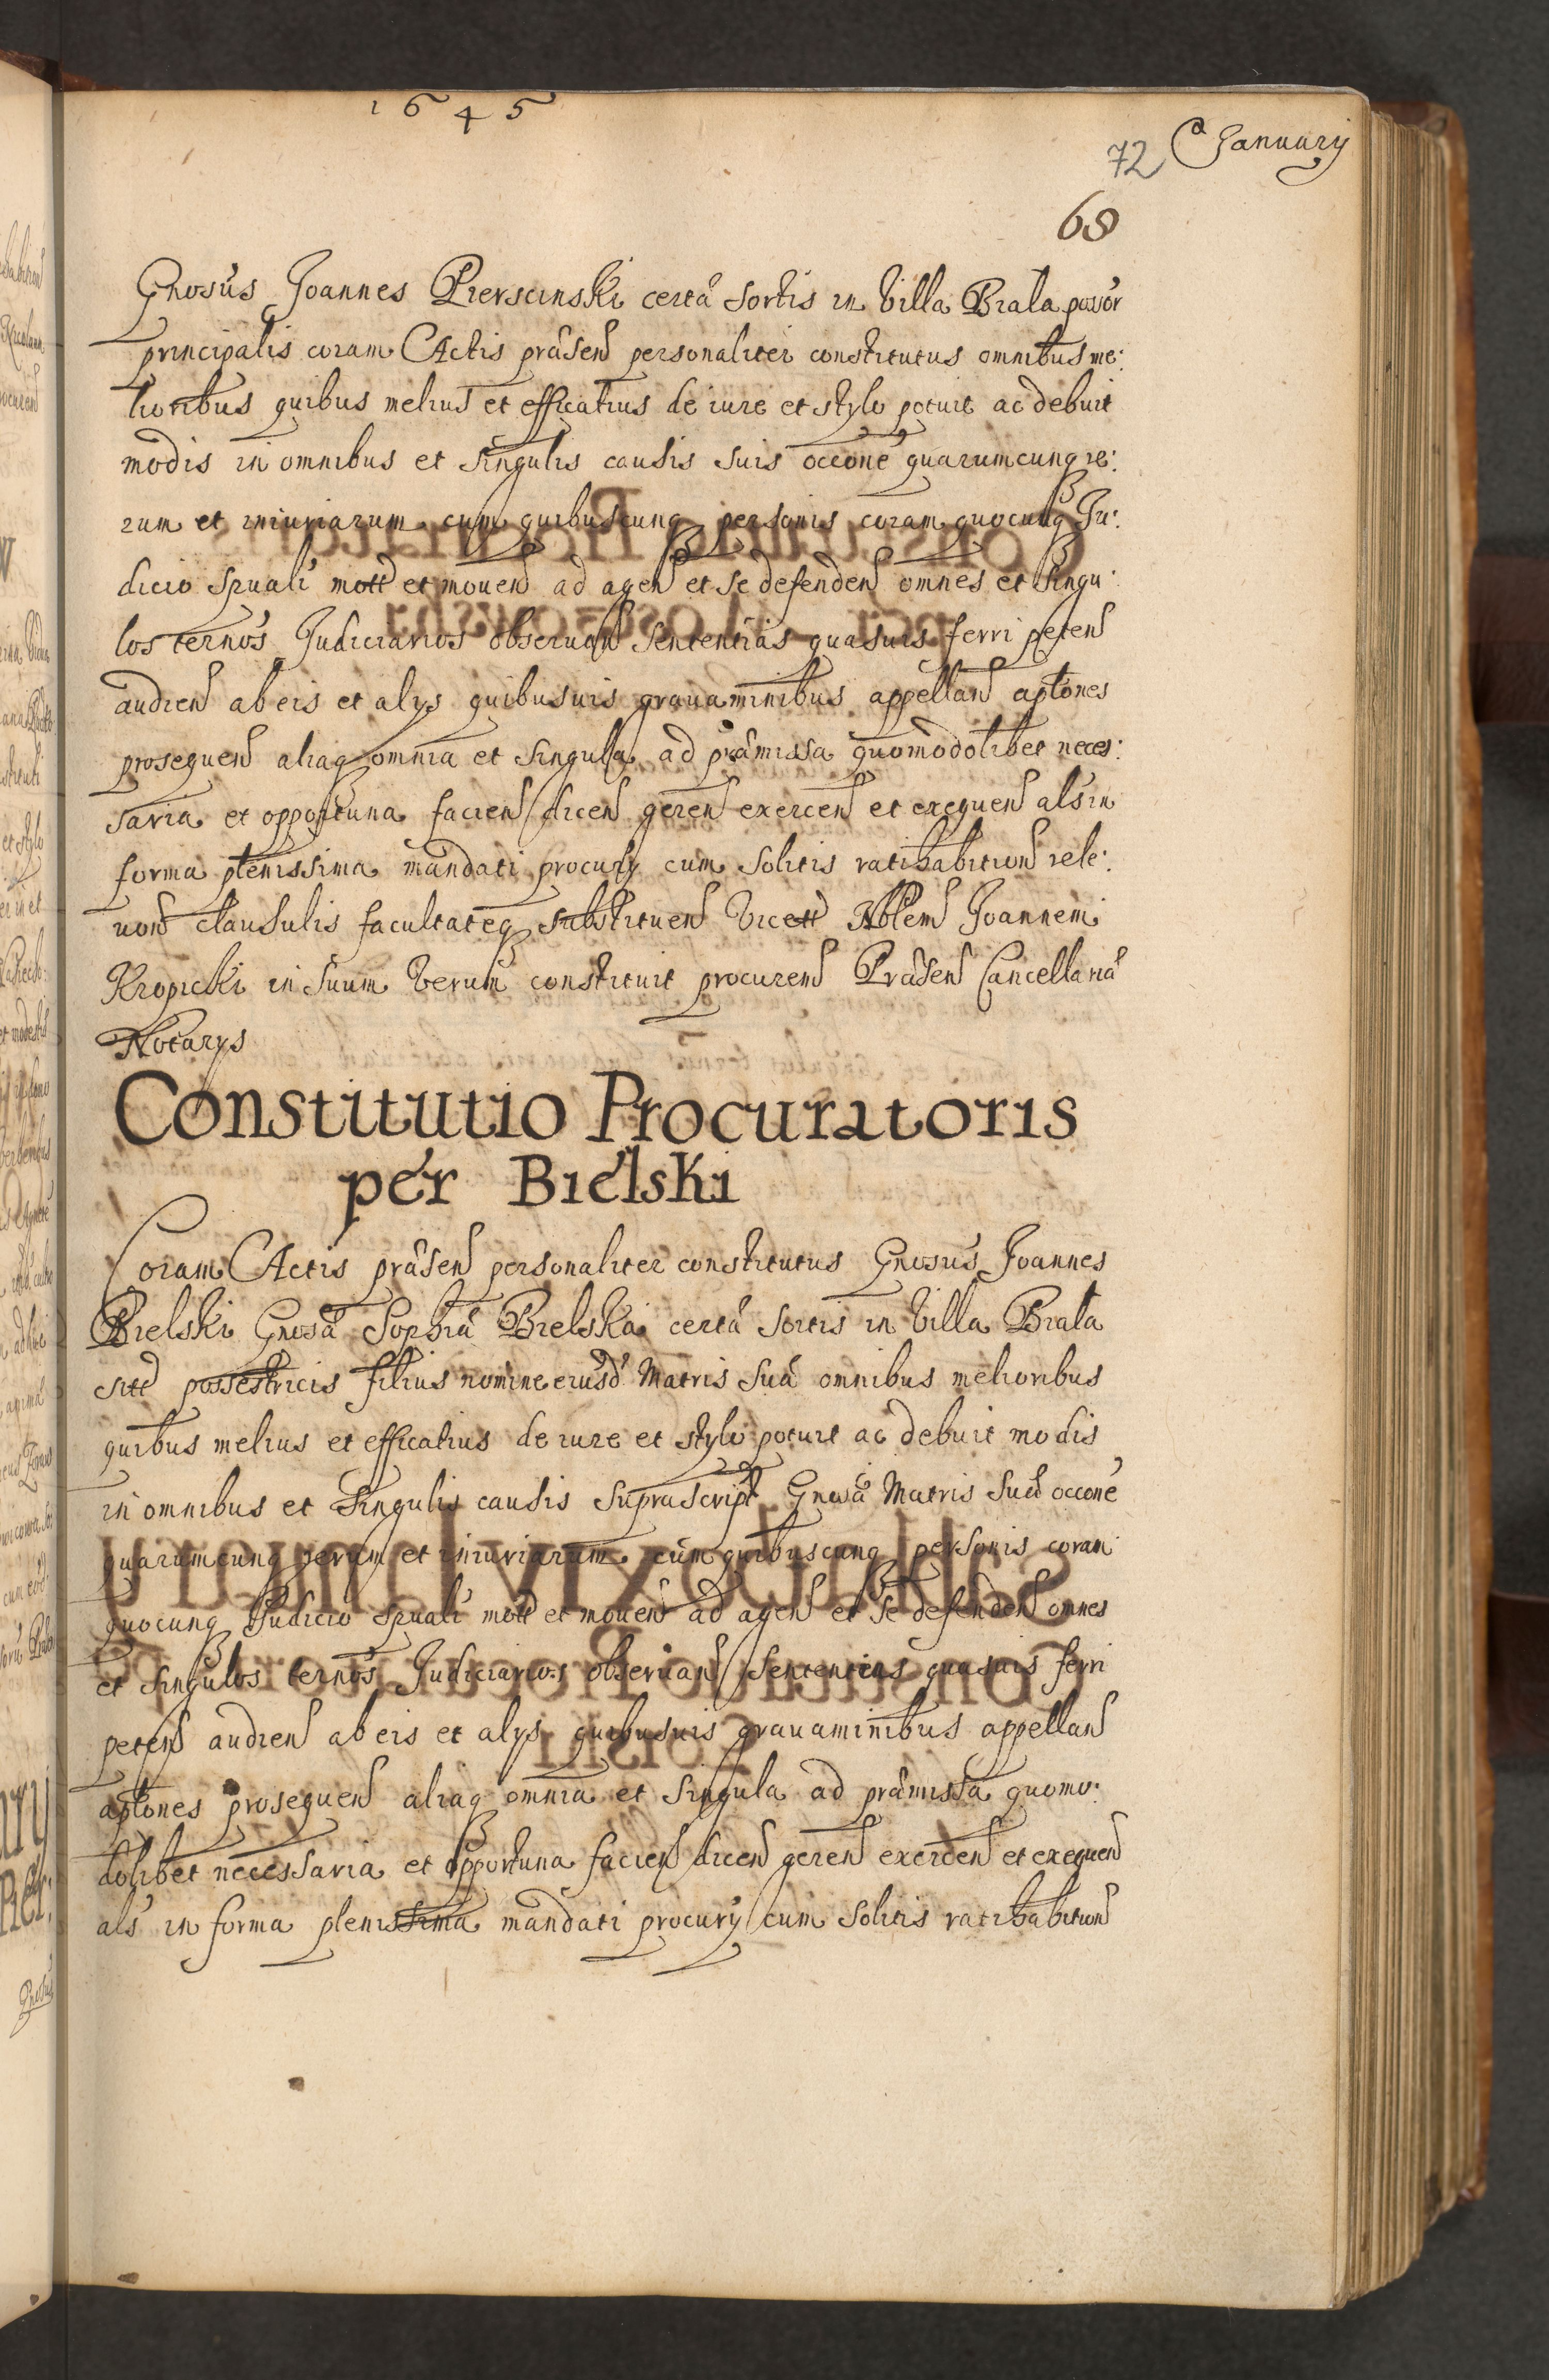 1645
a January
72
68
Gnosus Joannes Pierscinski certae sortis in Villa Biala possor
principalis coram Actis praesen personaliter constitutus omnibus me:
lioribus quibus melius et efficatius de iure et stylo potuit ac debuit
modis in omnibus et singulis causis suis occone quarumcunq re:
rum et iniuriarum cum quibuscunq personis coram quocunq Ju:
dicio spuali mott et mouen ad agen et se defenden omnes et singu:
los ternos Judiciarios obseruan sententias quasuis ferri peten
audien ab eis et alys quibusuis grauaminibus appellan aptones
prosequen aliaq omnia et singula ad praemissa quomodolibet neces:
saria et opportuna facien dicen geren exercen et exequen als in
forma plenissima mandati procury cum solitis ratihabition rele:
uon clausulis facultateq substituen vicett Nblem Joannem
Kropicki in suum verum constituit procurem Praesen Cancellariae
Notarys
Constitutio Procuratoris
per Bielski
Coram Actis praesen personaliter constitutus Gnosus Joannes
Bielski Gnosae Sophiae Bielska certae sortis in Villa Biala
sitt possestricis filius nomine eiusd Matris suae omnibus melioribus
quibus melius et efficatius de iure et stylo potuit ac debuit modis
in omnibus et singulis causis suprascript Gnosae Matris suae occone
quarumcunq rerum et iniuriarum cum quibuscunq personis coram
quocunq Judicio spuali mott et mouen ad agen et se defenden omnes
et singulos ternos Judiciarios obseruan sententias quasuis ferri
peten audien ab eis et alys quibusuis grauaminibus appellan
aptones prosequen aliaq omnia et singula ad praemissa quomo:
dolibet necessaria et opportuna facien dicen geren exercen et exequen
als in forma plenissima mandati procury cum solitis ratihabition